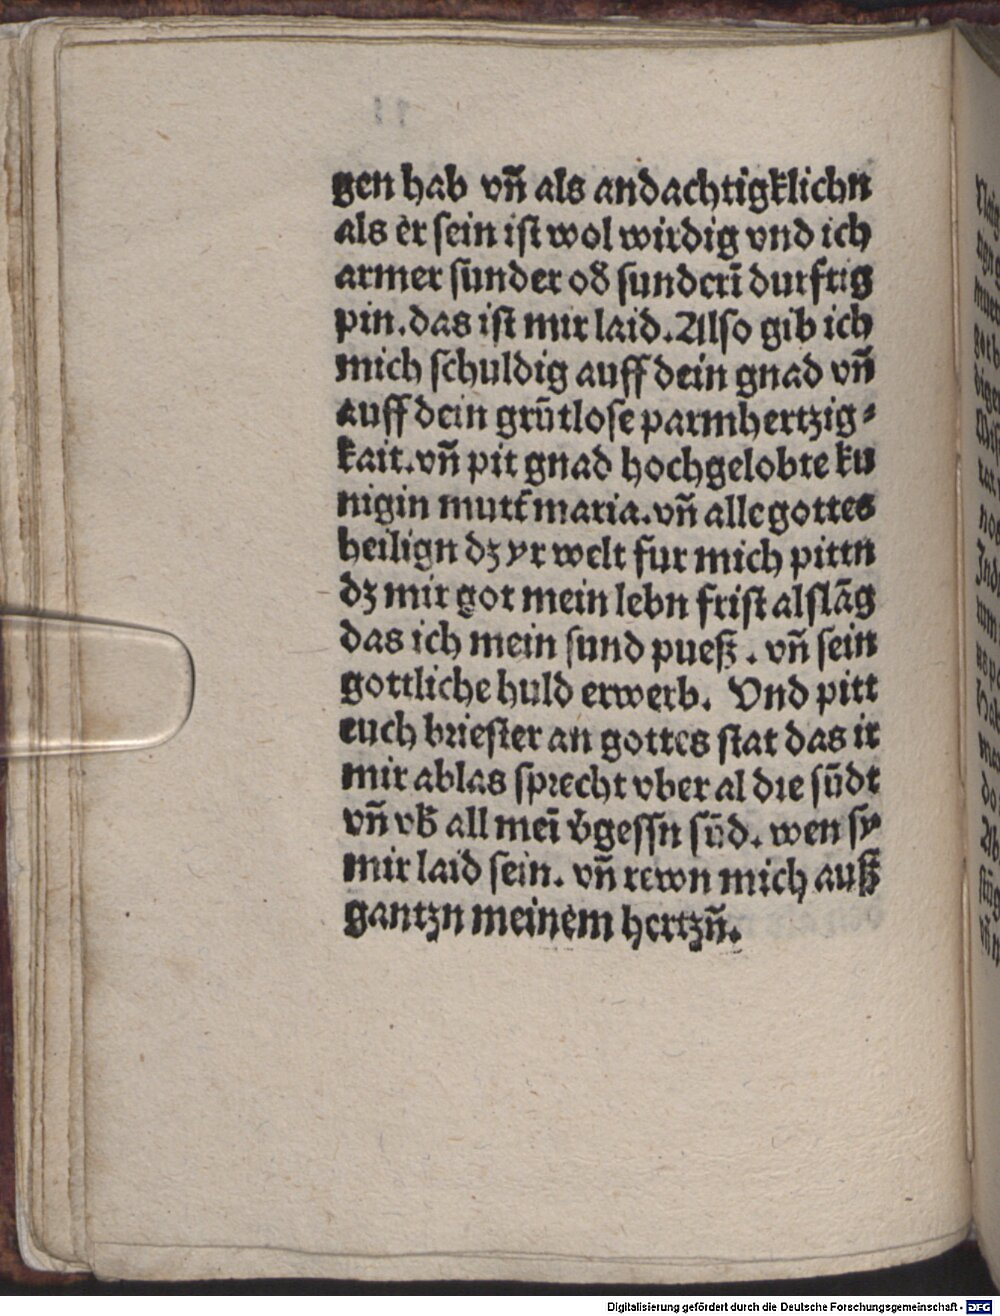 gen hab vñ als andachtigklichn
als er sein ist wol wirdig vnd ich
armer sunder od̕ sunderĩ durftig
pin. das ist mir laid. Also gib ich
mich schuldig auff dein gnad vñ
auff dein grũtlose parmhertzig⸗
kait. vñ pit gnad hochgelobte ku
nigin mutt̕ maria. vñ alle gottes
heilign dz yr welt fur mich pittn
dz mir got mein lebn frist als lãg
das ich mein sund pueß. vñ sein
gottliche huld erwerb. Vnd pitt
euch briester an gottes stat das ir
mir ablas sprecht vber al die sũdt
vñ vb̕ all meĩ v̕gessn sũd. wen sy
mir laid sein. vñ rewn mich auß
gantzn meinem hertzñ.
Digitalisierung gefördert durch die Deutsche Forschungsgemeinschaft - DFG